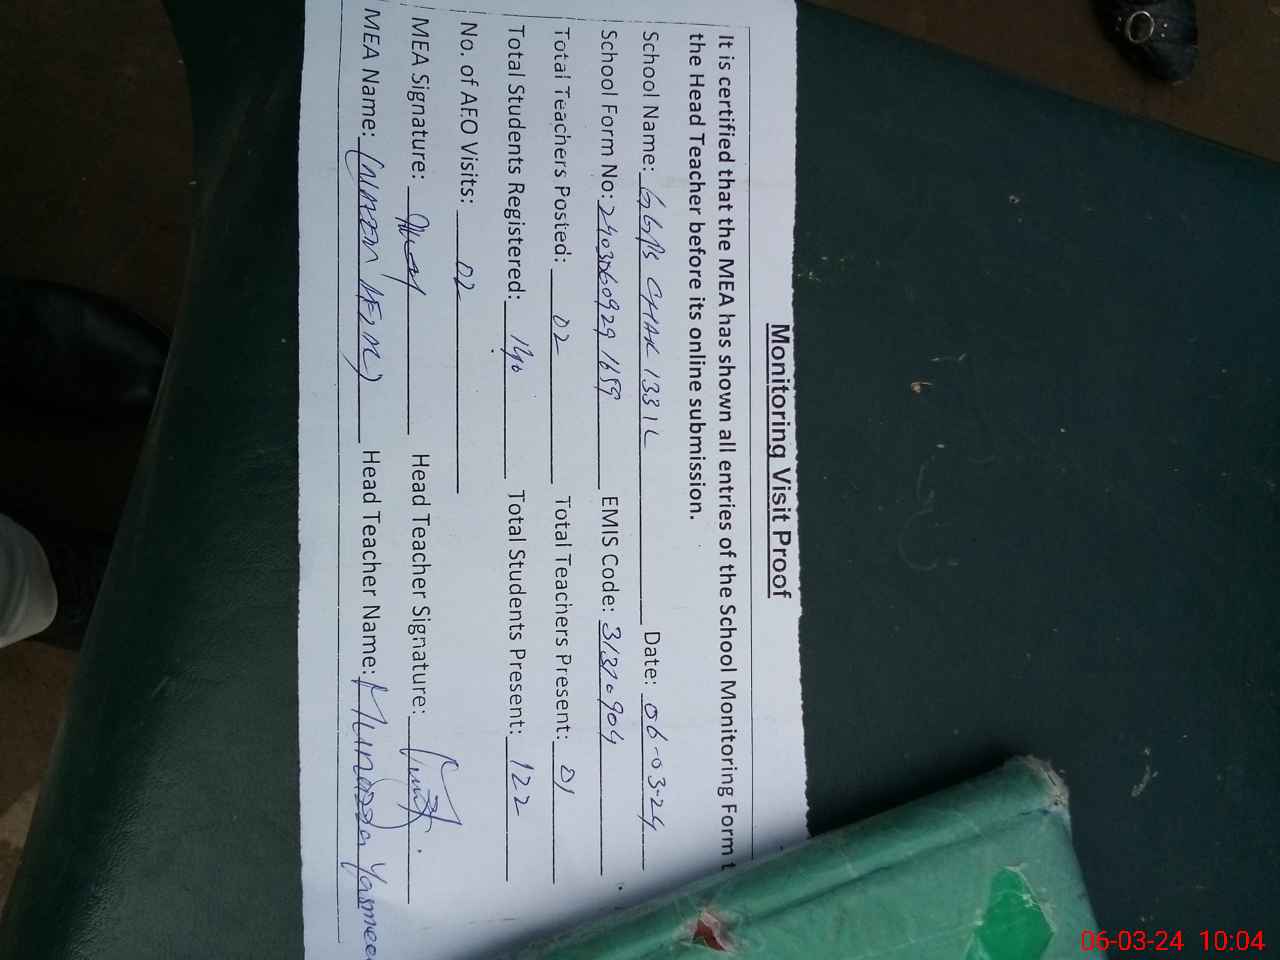 Monitoring Visit Proof
It is certified that the MEA has shown all entries of the School Monitoring Form t
the Head Teacher before its online submission.
School Name: GGPS CHAK 133 1L Date: 06-03-24
School Form No: 2403060929 1659 EMIS Code: 31310904
Total Teachers Posted: 02 Total Teachers Present: 01
Total Students Registered: 140 Total Students Present: 122
No. of AEO Visits: 02
MEA Signature: Head Teacher Signature:
MEA Name: Head Teacher Name: Munazza Yasmee
06-03-24 10:04